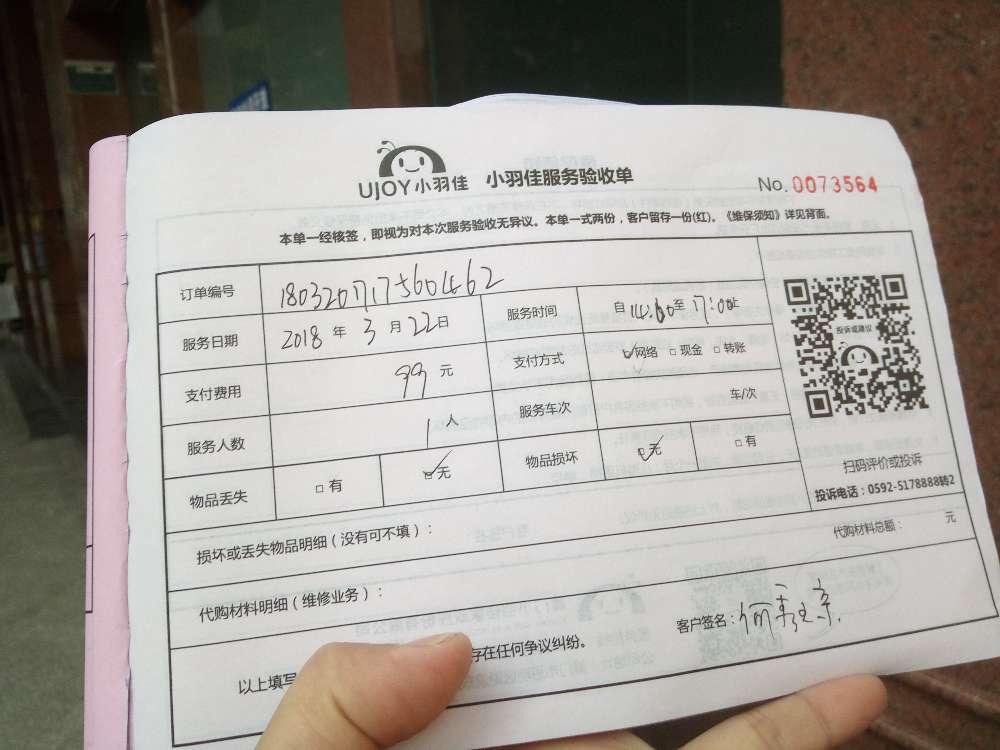 UJOY小羽佳 小羽佳服务验收单 No. 0073564
本单一经核签，即视为对本次服务验收无异议。本单一式两份，客户留存一份(红)。《维保须知》详见背面。
订单编号 180320717560462
服务日期 2018 年 3 月 22 日 服务时间 自 14:00 至 17:00 止
支付费用 99 元 支付方式 网络 现金 转账
服务人数 1 人 服务车次 车/次
物品丢失 有 无 物品损坏 无 有
投诉或建议
扫码评价或投诉
投诉电话：0592-5178888转2
损坏或丢失物品明细（没有可不填）：
代购材料总额： 元
代购材料明细（维修业务）：
以上填写 存在任何争议纠纷。
客户签名：